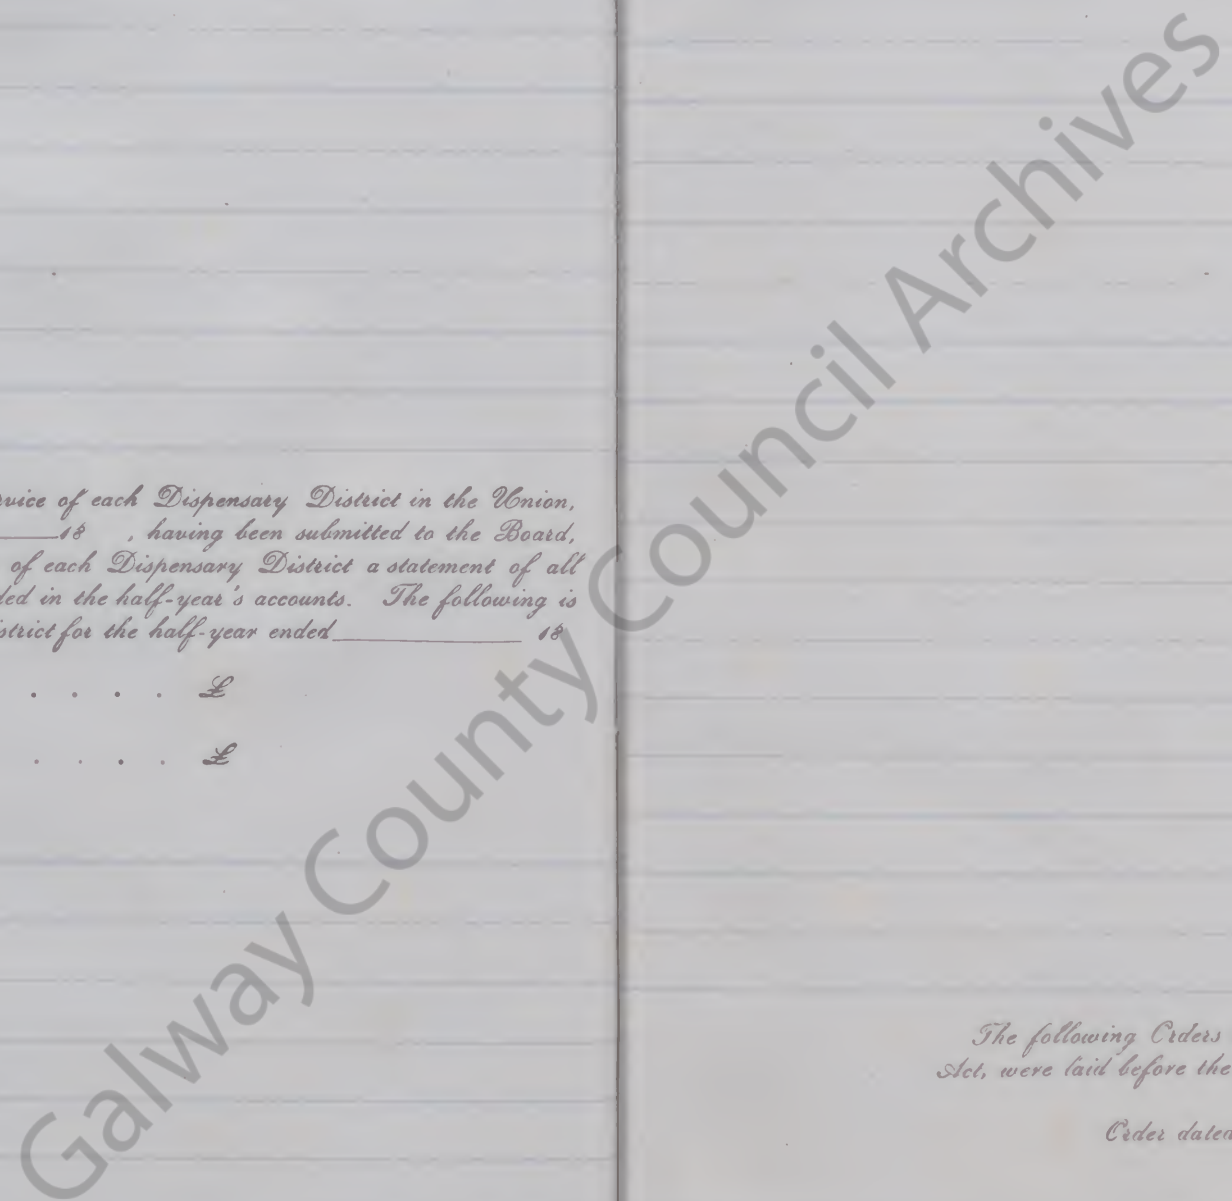 rvice of each Dispensary District in the Union,
18 , having been submitted to the Board,
of each Dispensary District a statement of all
ded in the half-year's accounts. The following is
istrict for the half-year ended 18
. . . . £
. . . . £
The following Orders
Act, were laid before the
Order dated
Galway County Council Archives